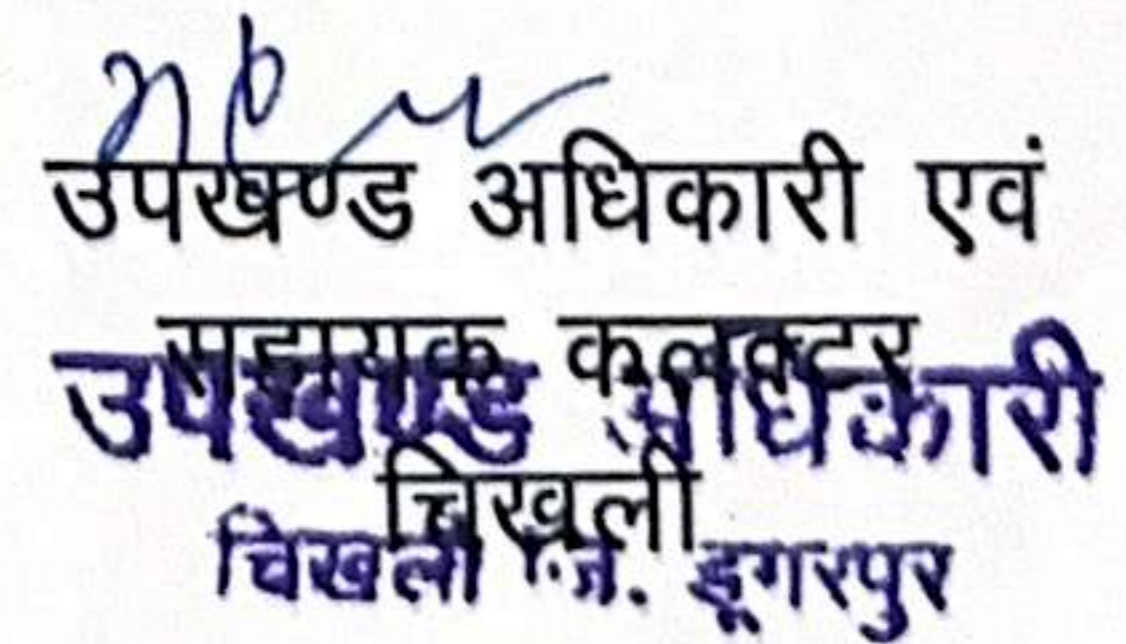 उपखण्ड अधिकारी एवं
सहायक कलक्टर
उपखण्ड अधिकारी
चिखली
चिखली जि. डूगरपुर